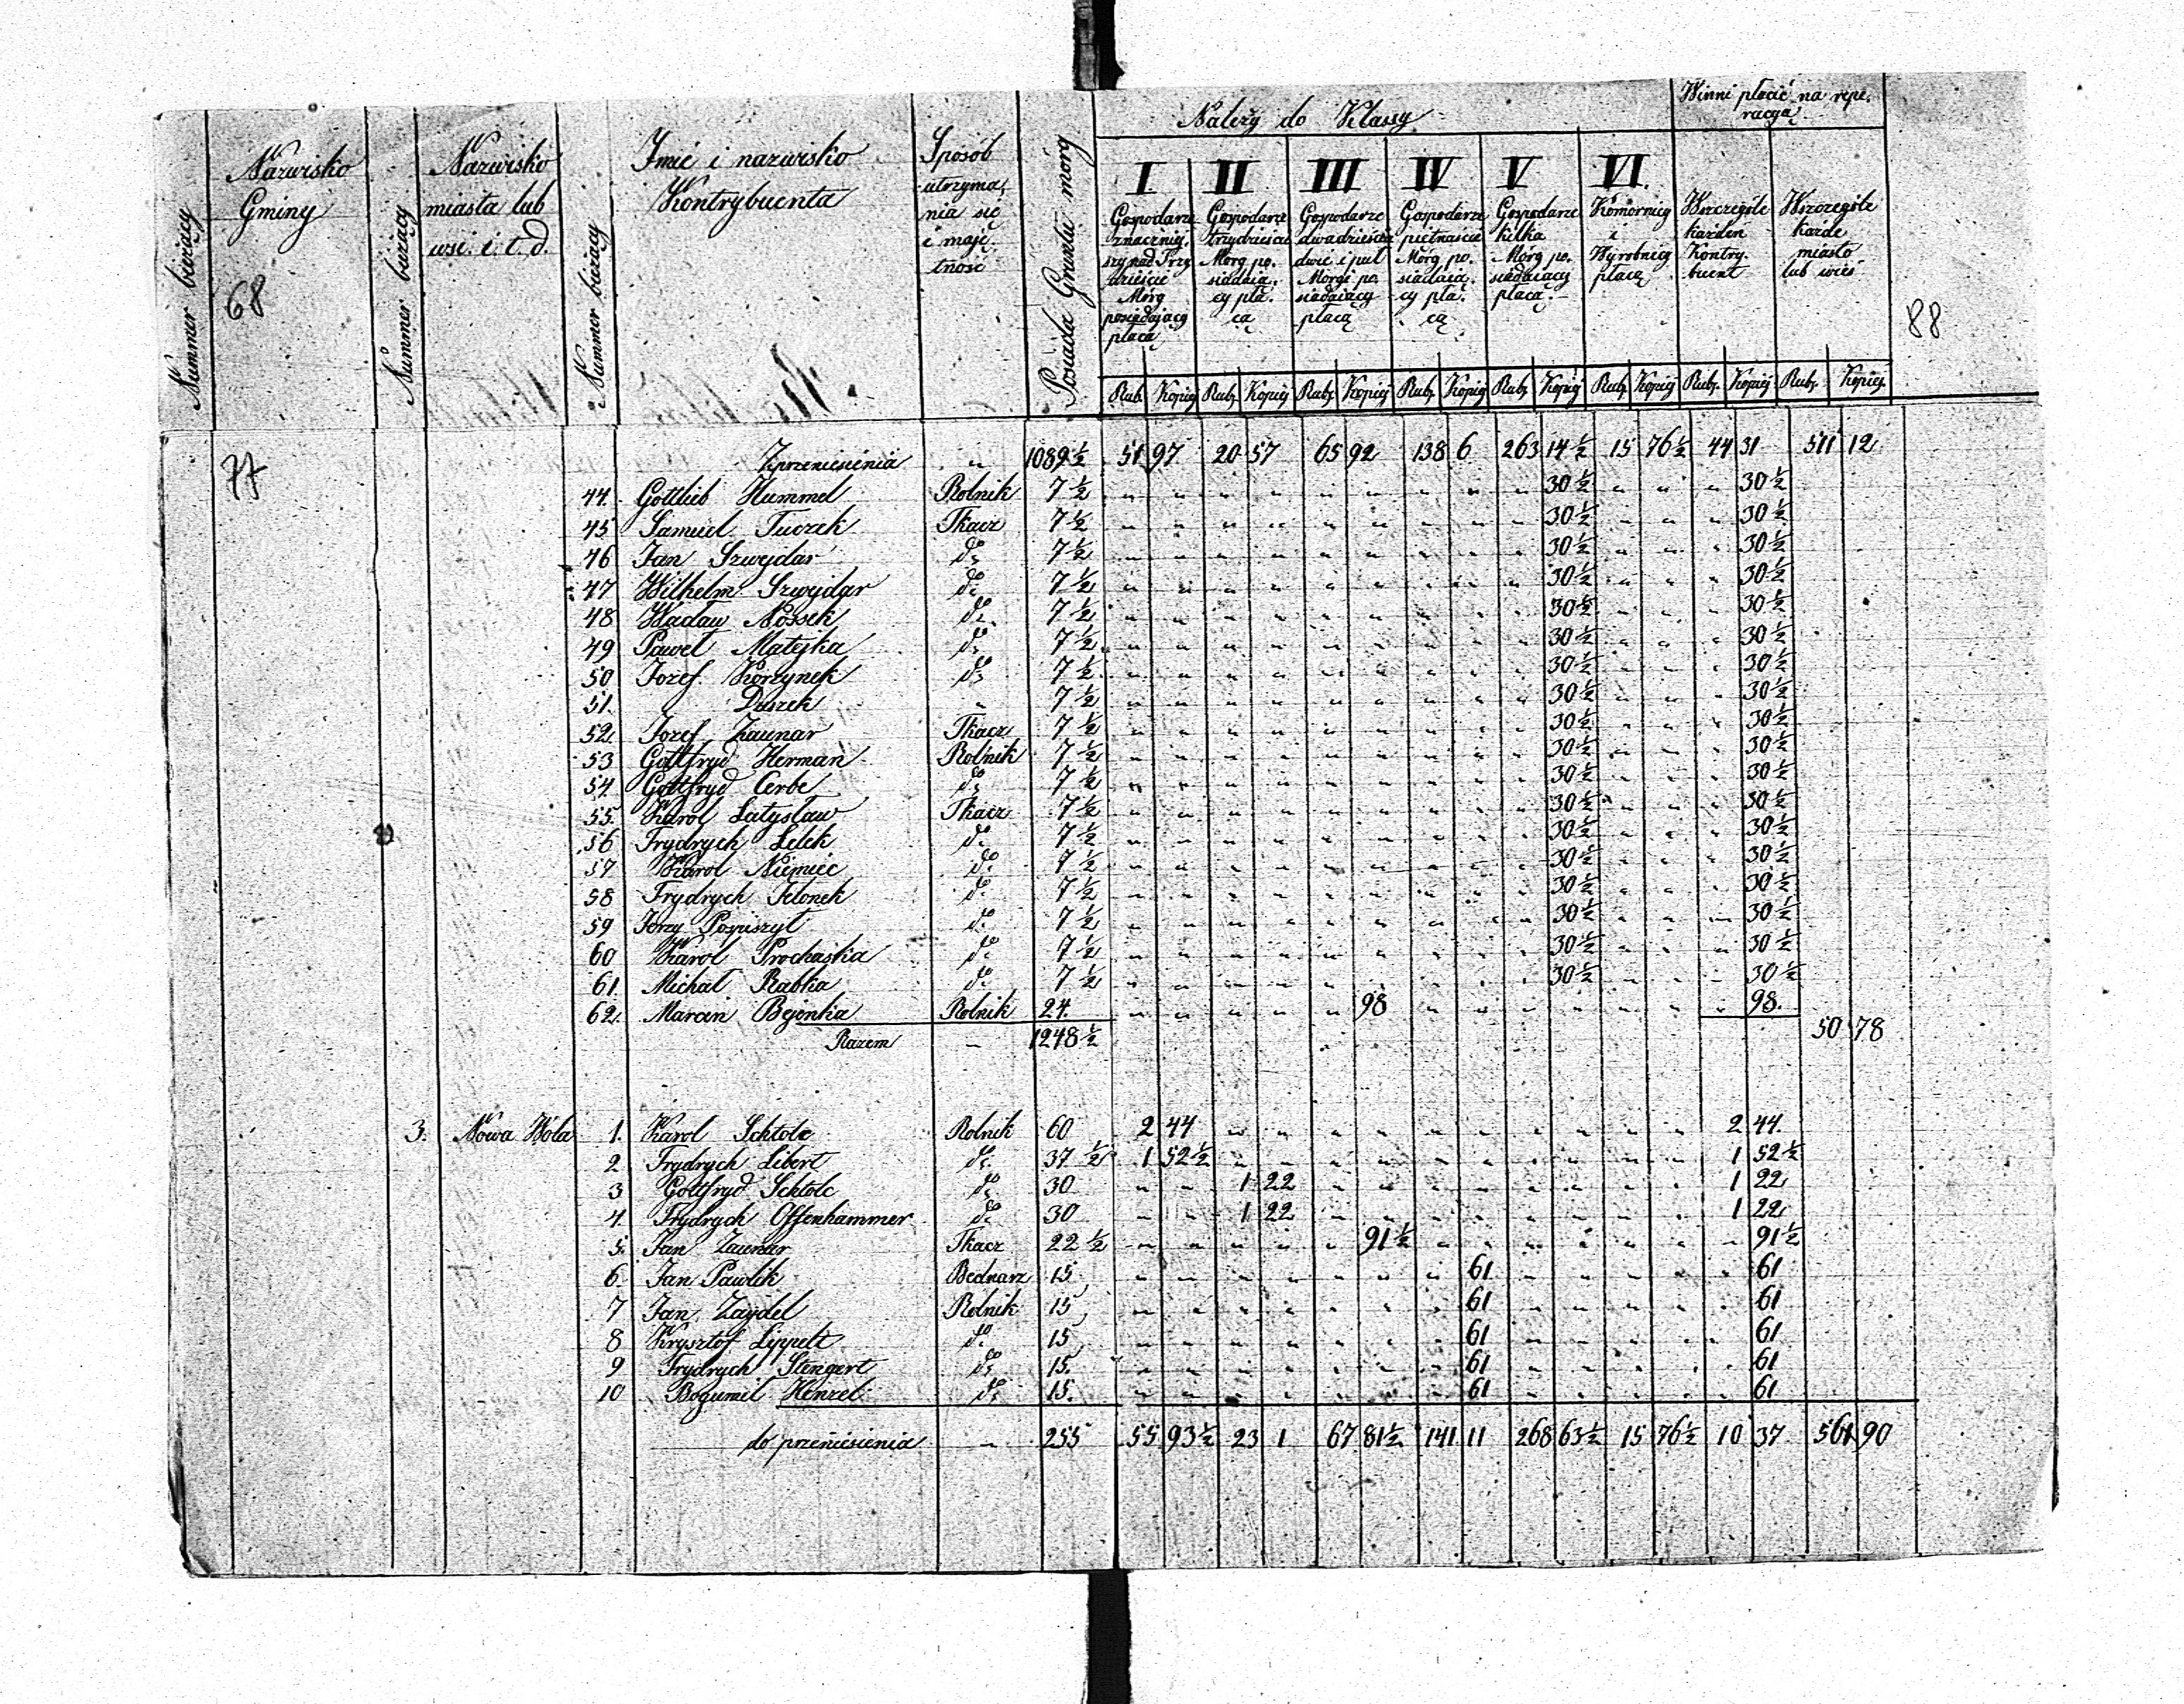 Nummer bieżący
Nazwisko Gminy
68
Nummer bieżący
Nazwisko miasta lub wsi. i. t. d.
Nummer bieżący
Imie i nazwisko Kontrybuenta
Sposób utrzyma, nia się i maję, tność
Posiada Gruntu mórg
Należy do Klassy
Winni płacić na repe, racyą
I Gospodarze znaczniej, szy nad Trzy dzieście Mórg posiadający płacą
II Gospodarze trzydzieście Mórg po, siadają, cy pła, cą
III Gospodarze dwadzieścia dwie i puł Morgi po siadający płacą
IV Gospodarze piętnaście Mórg po, siadają, cy pła, cą
V Gospodarze kilka Mórg po, siadający płacą
VI. Komornicy i Wyrobnicy płacą
Wszczególe każden Kontry, buent
Wszczególe każde miasto lub wieś
88
Rub. Kopiej Rub. Kopiej Rub. Kopiej Rub. Kopiej Rub. Kopiej Rub. Kopiej Rub. Kopiej Rub. Kopiej.
77
Zprzeniesienia " 1089 ½ 51 97 20 57 65 92 138 6 263 14 ½ 15 76 ½ 44 31 511 12
44. Gottlieb Hummel Rolnik 7 ½ " " " " " " " " " 30 ½ " " " 30 ½
45 Samuel Tuczek Tkacz 7 ½ " " " " " " " " " 30 ½ " " " 30 ½
46 Jan Szwejdar do 7 ½ " " " " " " " " " 30 ½ " " " 30 ½
47 Wilhelm Szwejdar do 7 ½ " " " " " " " " " 30 ½ " " " 30 ½
48 Wacław Nossek do 7 ½ " " " " " " " " " 30 ½ " " " 30 ½
49 Paweł Matejka do 7 ½ " " " " " " " " " 30 ½ " " " 30 ½
50 Jozef Korzynek do 7 ½ " " " " " " " " " 30 ½ " " " 30 ½
51. Duszek " 7 ½ " " " " " " " " " 30 ½ " " " 30 ½
52. Jozef Zaunar Tkacz 7 ½ " " " " " " " " " 30 ½ " " " 30 ½
53 Gottfryd Herman Rolnik 7 ½ " " " " " " " " " 30 ½ " " " 30 ½
54 Gottfryd Cerbe do 7 ½ " " " " " " " " " 30 ½ " " " 30 ½
55. Karol Latysław Tkacz 7 ½ " " " " " " " " " 30 ½ " " " 30 ½
56 Frydrych Lelek do 7 ½ " " " " " " " " " 30 ½ " " " 30 ½
57 Karol Niemiec do 7 ½ " " " " " " " " " 30 ½ " " " 30 ½
58 Frydrych Jelonek do 7 ½ " " " " " " " " " 30 ½ " " " 30 ½
59 Jerzy Pospiszyl do 7 ½ " " " " " " " " " 30 ½ " " " 30 ½
60 Karol Prochaska do 7 ½ " " " " " " " " " 30 ½ " " " 30 ½
61. Michał Rabka do 7 ½ " " " " " " " " " 30 ½ " " " 30 ½
62. Marcin Bejonka Rolnik 24. " " " " " 98 " " " " " " " 98.
Razem " 1248 ½ 50 78
3. Nowa Wola 1. Karol Schtolc Rolnik 60 2 44 " " " " " " " " " " 2 44.
2 Frydrych Libert do 37 ½ 1 52 ½ " " " " " " " " " " 1 52 ½
3 Gottfryd Schtolc do 30 " " 1 22 " " " " " " " " 1 22
4. Frydrych Offenhammer do 30 " " 1 22 " " " " " " " " 1 22
5. Jan Zaunar Tkacz 22 ½ " " " " " 91 ½ " " " " " " " 91 ½
6 Jan Pawlik Bednarz 15 " " " " " " " 61 " " " " " 61
7 Jan Zaydel Rolnik 15 " " " " " " " 61 " " " " " 61
8 Krysztof Lippelt do 15 " " " " " " " 61 " " " " " 61
9 Frydrych Stengert do 15. " " " " " " " 61 " " " " " 61
10 Bogumil Henzel do 15. " " " " " " " 61 " " " " " 61
do przeniesienia " 255 55 93 ½ 23 1 67 81 ½ 141 11 268 63 ½ 15 76 ½ 10 37 561 90